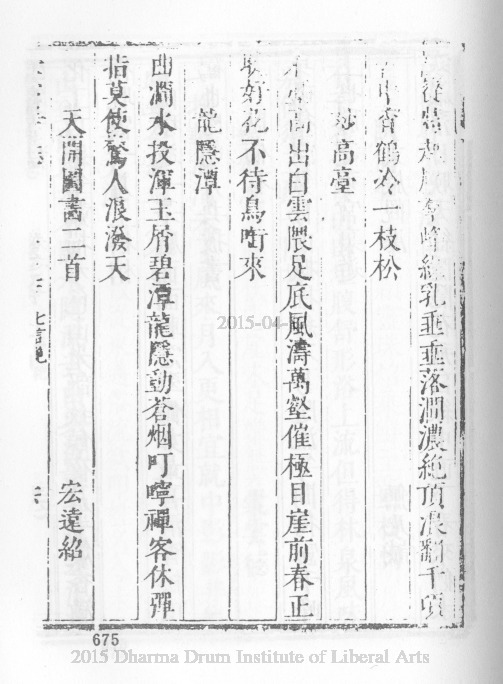 峰絲乳垂垂落澗濃絶頂浪翻千頃
鶴冷一枝松
妙高臺
高出白雲隈足底風濤萬壑催極目崖前春正
好花不待鳥啣來
龍隱潭
曲澗水投渾玉屑碧潭龍隱動蒼烟叮嚀禪客休彈
指莫使驚人浪潑天
天開圖畵二首 宏遠紹
675
2015-04-
2015 Dharma Drum Institute of Liberal Arts